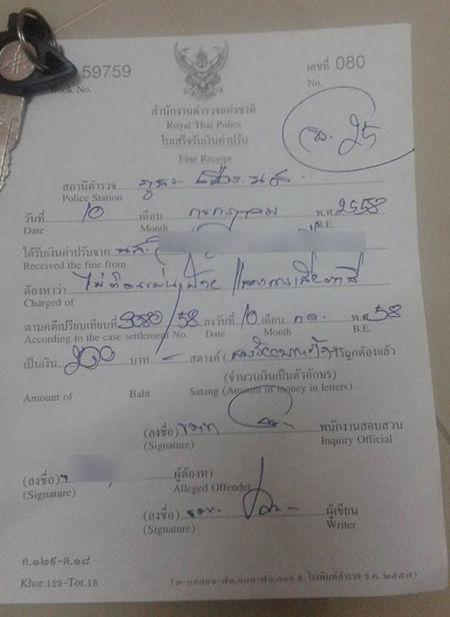 59759 เลขที่ 080
Book No. No.
สำนักงานตำรวจแห่งชาติ
Royal Thai Police
ใบเสร็จรับเงินค่าปรับ
Fine Receipt
25
สถานีตำรวจ
Police Station
วันที่ 10 เดือน กรกฎาคม พ.ศ. 2558
Date Month B.E.
ได้รับเงินค่าปรับจาก
Received the fine from
ต้องหาว่า ไม่ติดแผ่นป้าย
Charged of
ตามคดีเปรียบเทียบที่ /58 ลงวันที่ 10 เดือน กค. พ.ศ. 58
According to the case settlement No. Date Month B.E.
เป็นเงิน 200 บาท – สตางค์ ( ) ไว้ถูกต้องแล้ว
(จำนวนเงินเป็นตัวอักษร)
Amount of Baht Satang (Amount of money in letters)
(ลงชื่อ) พนักงานสอบสวน
(Signature) Inquiry Official
(ลงชื่อ) ผู้ต้องหา
(Signature) Alleged Offender
(ลงชื่อ) ผู้เขียน
(Signature) Writer
ค.๑๒๙-ต.๑๘
Khor.129-Tor.18